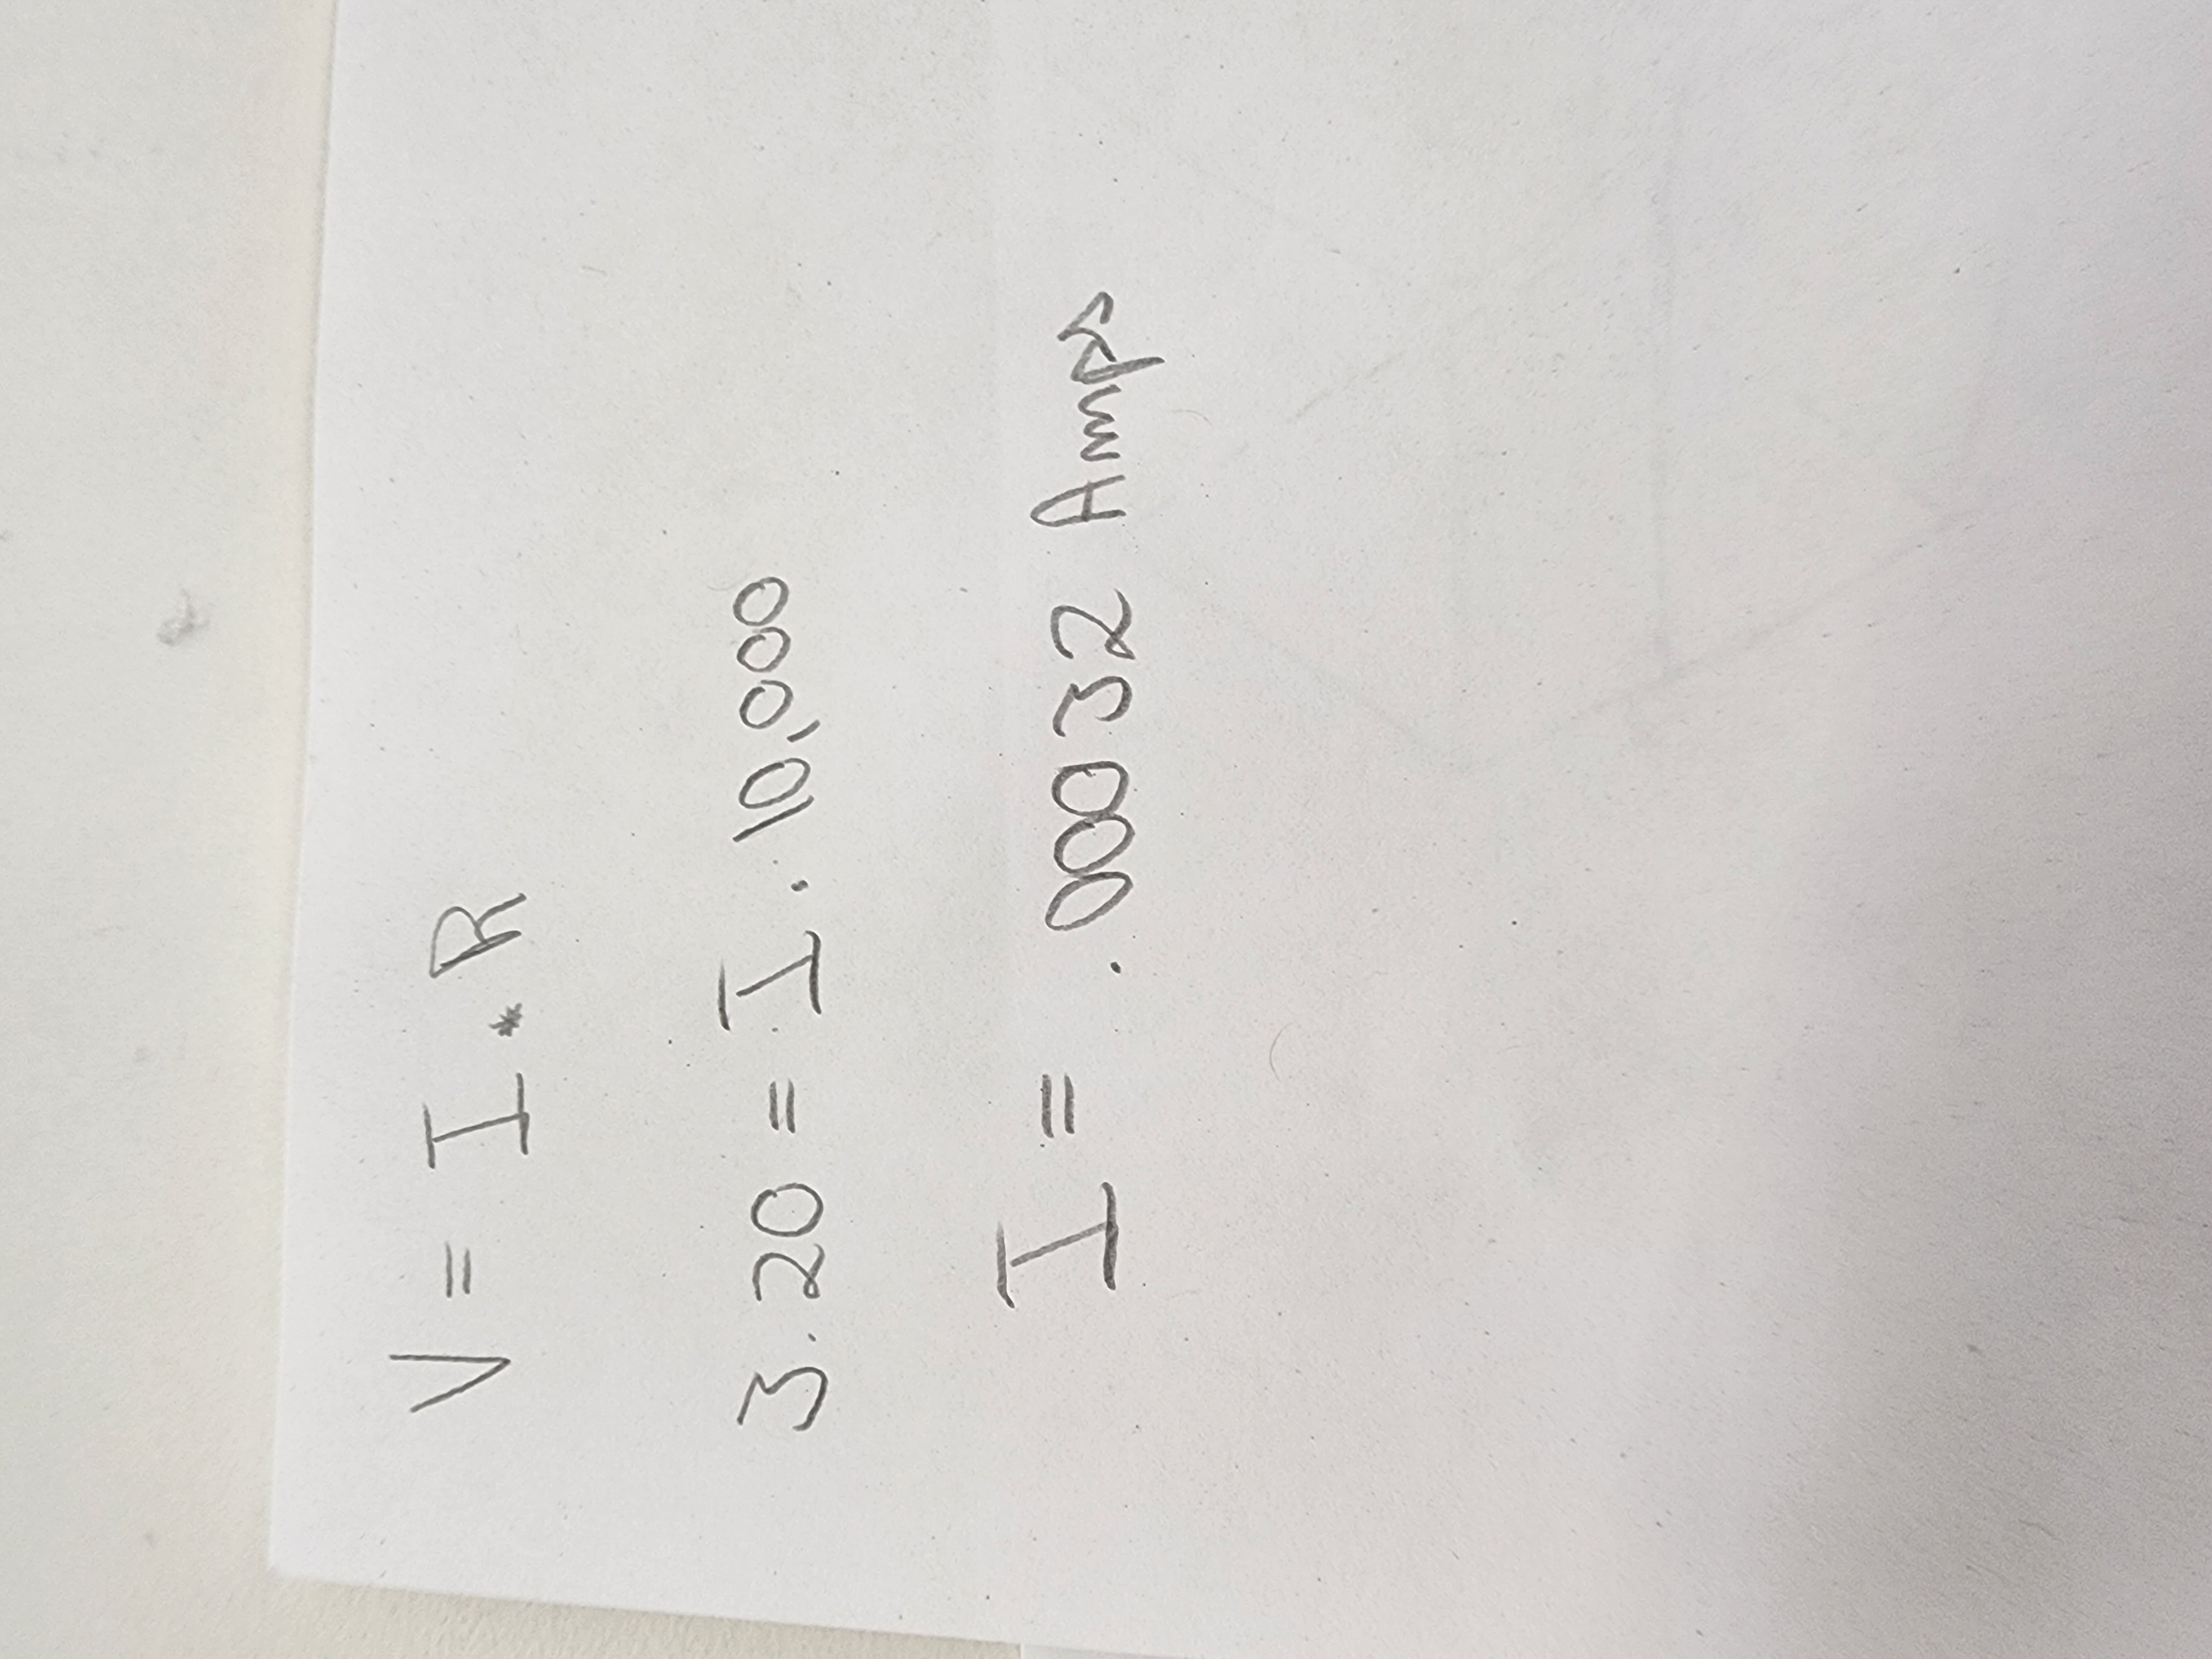 V = I * R
3.20 = I . 10,000
I = .00032 Amps